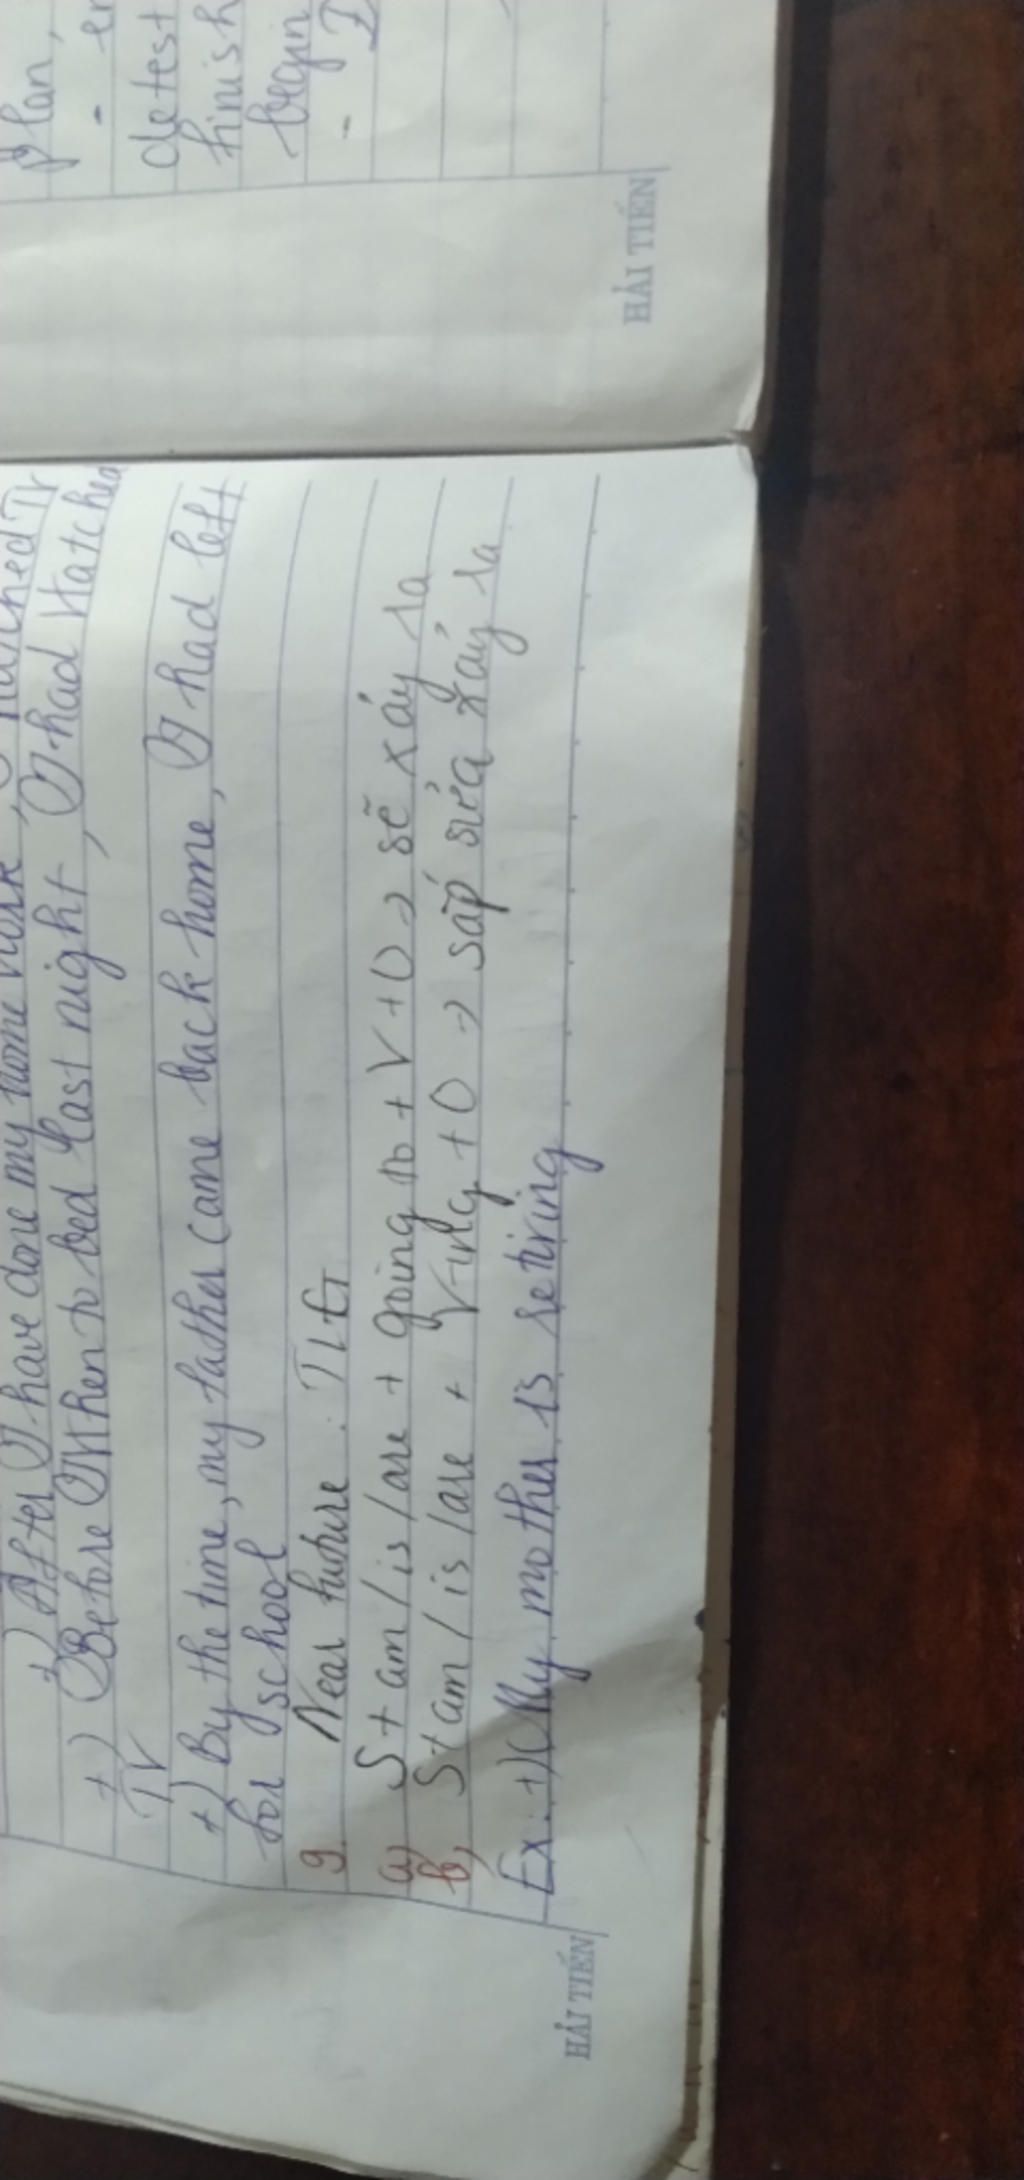 +) After I have done my home work, I watched TV
+) Before I When to bed last night, I had Watched
TV
+) By the time, my father came back home, I had left
for school
9. Near future: TLG
a) S + am / is / are + going to + V + O → sẽ xảy ra
b) S + am / is / are + Ving + O → sắp sửa xảy ra
Ex: +) My mother is retiring
HẢI TIẾN
plan,
- en
detest
finish
begin
HẢI TIẾN